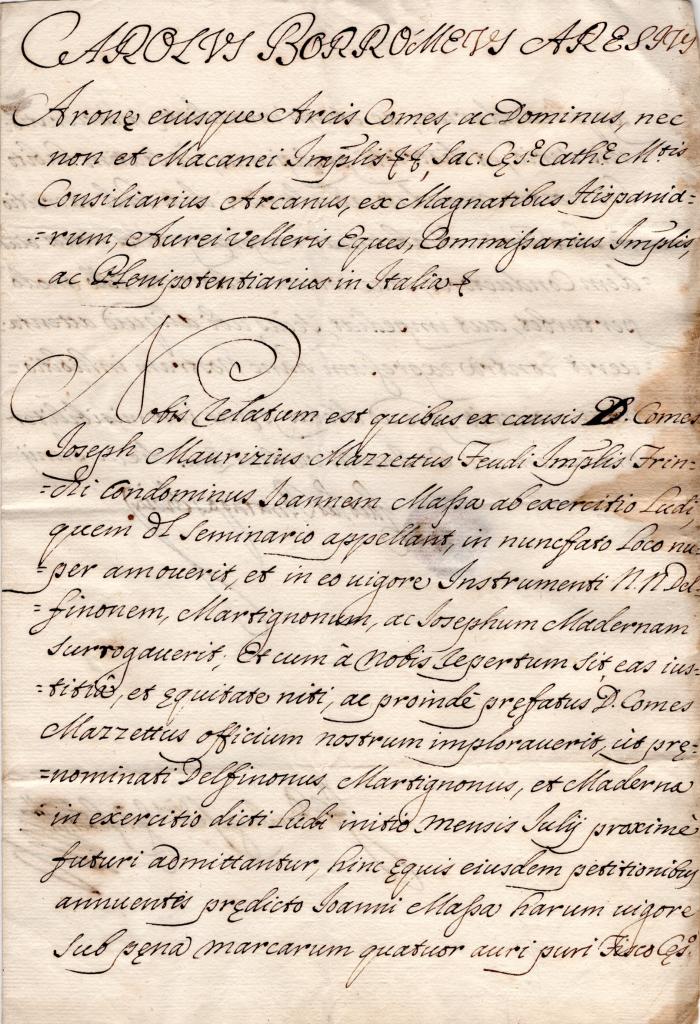 CAROLVS BORROMEVS ARESIVS
Aronę eiusque Arcis Comes, ac Dominus, nec
non et Macanei Implis &&, Sac: Cęs.ę Cath.ę M.tis
Consiliarius Arcanus, ex Magnatibus Hispania=
=rum, Aurei Velleris Eques, Commissarius Implis,
ac Plenipotentiarius in Italia &
Nobis relatum est quibus ex causis D. Comes
Joseph Maurizius Mazzettus Feudi Implis Frin=
=ci condominus Joannem Massa ab exercitio Ludi
quem dl Seminario appellant, in nuncfato Loco nu=
=per amouerit, et in eo uigore Instrumenti N.N Del=
=finonem, Martignonum, ac Josephum Madernam
surrogauerit; Et cum à Nobis repertum sit, eas ius=
=titiâ, et ęquitate niti, ac proindè pręfatus D. Comes
Mazzettus officium nostrum implorauerit, ùt prę=
=nominati Delfinonus, Martignonus, et Maderna
in exercitio dicti Ludi initio Mensis Julij proximè
futuri admittantur, hinc ęquis eiusdem petitionibus
annuentes prędicto Joanni Massa harum uigore
sub pęna marcarum quatuor auri puri Fisco Cęs.o